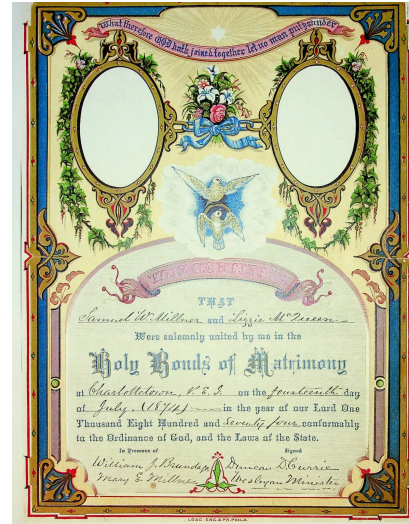 What therefore GOD hath joined together let no man put asunder
THIS CERTIFIES
THAT
Samuel W. Millner and Lizzie McQueen
Were solemnly united by me in the
Holy Bonds of Matrimony
at Charlottetown, P. E. I. on the fourteenth day
of July (1874) in the year of our Lord One
Thousand Eight Hundred and Seventy four conformably
to the Ordinance of God, and the Laws of the State.
In Presence of Signed
William J. Duncan D. Currie
Mary E. Millner Wesleyan Minister
LOAG ENG. & PR. PHILA.